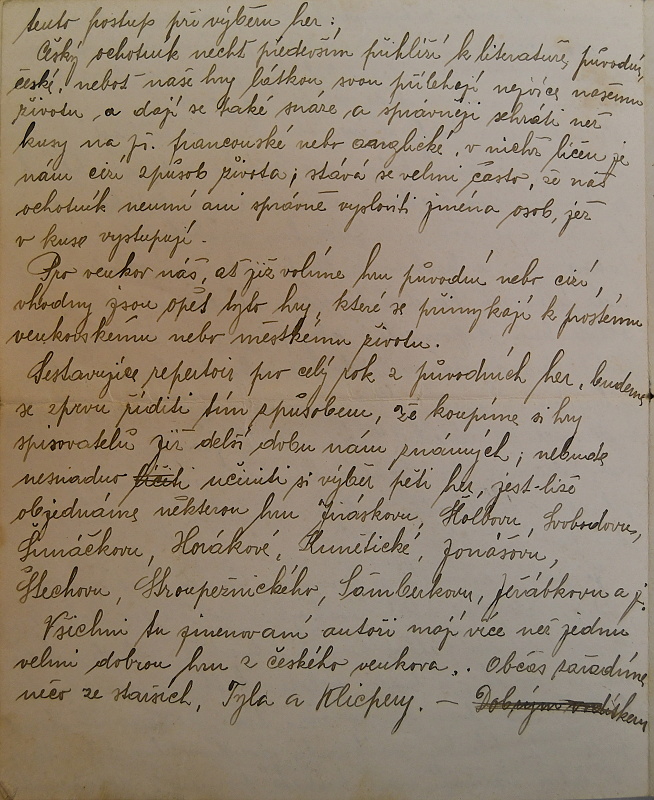 tento postup při výběru her:
Český ochotník nechť především přihlíží k literatuře původní,
české, neboť naše hry látkou svou přiléhají nejvíce našemu
životu a dají se také snáze a správněji sehráti než
kusy na př. francouské nebo anglické, v nichž líčen je
nám cizí způsob života; stává se velmi často, že náš
ochotník neumí ani správně vysloviti jména osob, jež
v kuse vystupují.
Pro venkov náš, ať již volíme hru původní nebo cizí,
vhodny jsou opět tyto hry, které se přimykají k prostému
venkovskému nebo městkému životu.
Sestavujíce repertoir pro celý rok z původních her, budeme
se zprvu říditi tím způsobem, že koupíme si hry
spisovatelů již delší dobu nám známých; nebude
nesnadno učiniti si výběr pěti her, jest-liže
objednáme některou hru Jiráskovu, Štolbovu, Svobodovu,
Šimáčkovu, Horákové, Kunětické, Jonášovu,
Štechovu, Stroupežnického, Šamberkovu, Jeřábkovu a j.
Všichni tu jmenovaní autoři mají více než jednu
velmi dobrou hru z českého venkova.. Občas zařadíme
něco ze starších, Tyla a Klicpery. — Dobrým